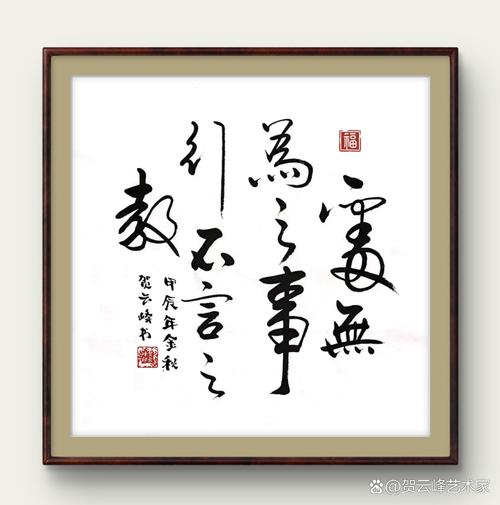 福
處無
為之事
行不言之
教
甲辰年金秋
贺云峰书
贺云峰艺术家